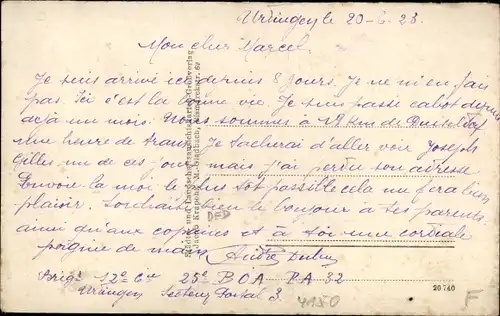 Urdingen le 20-6-23.
Mon cher Marcel.
Je suis arrivé ici depuis 8 jours. Je ne m'en fais
pas. Ici c'est la bonne vie. Je suis passé cabot depuis
déjà un mois. Nous sommes à 12 Km de Dusseldorf
une heure de tram. Je tacherai d'aller voir Joseph
Gilles un de ces jours mais j'ai perdu son adresse
Envoie la moi le plus tot possible cela me fera bien
plaisir. Souhaite bien le bonjour à tes parents
ainsi qu'aux copains et à toi une cordiale
poignée de main
Brigr 12e Cie 25e B O A P A 32
Urdingen Secteur Postal 3
Städte- und Landschaftsansichtskarten-Großverlag
DFD
4150
20740
F